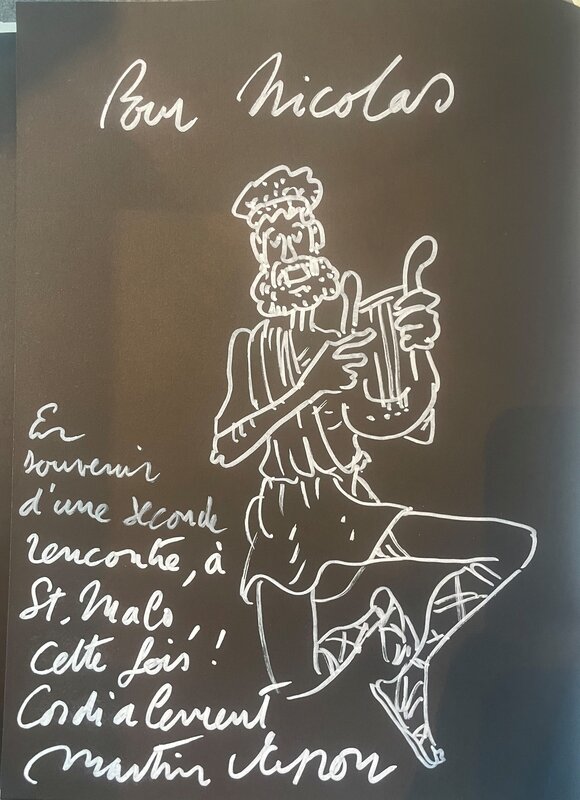 Pour Nicolas
En
souvenir
d'une seconde
rencontre, à
St. Malo,
cette fois !
Cordialement
Martin